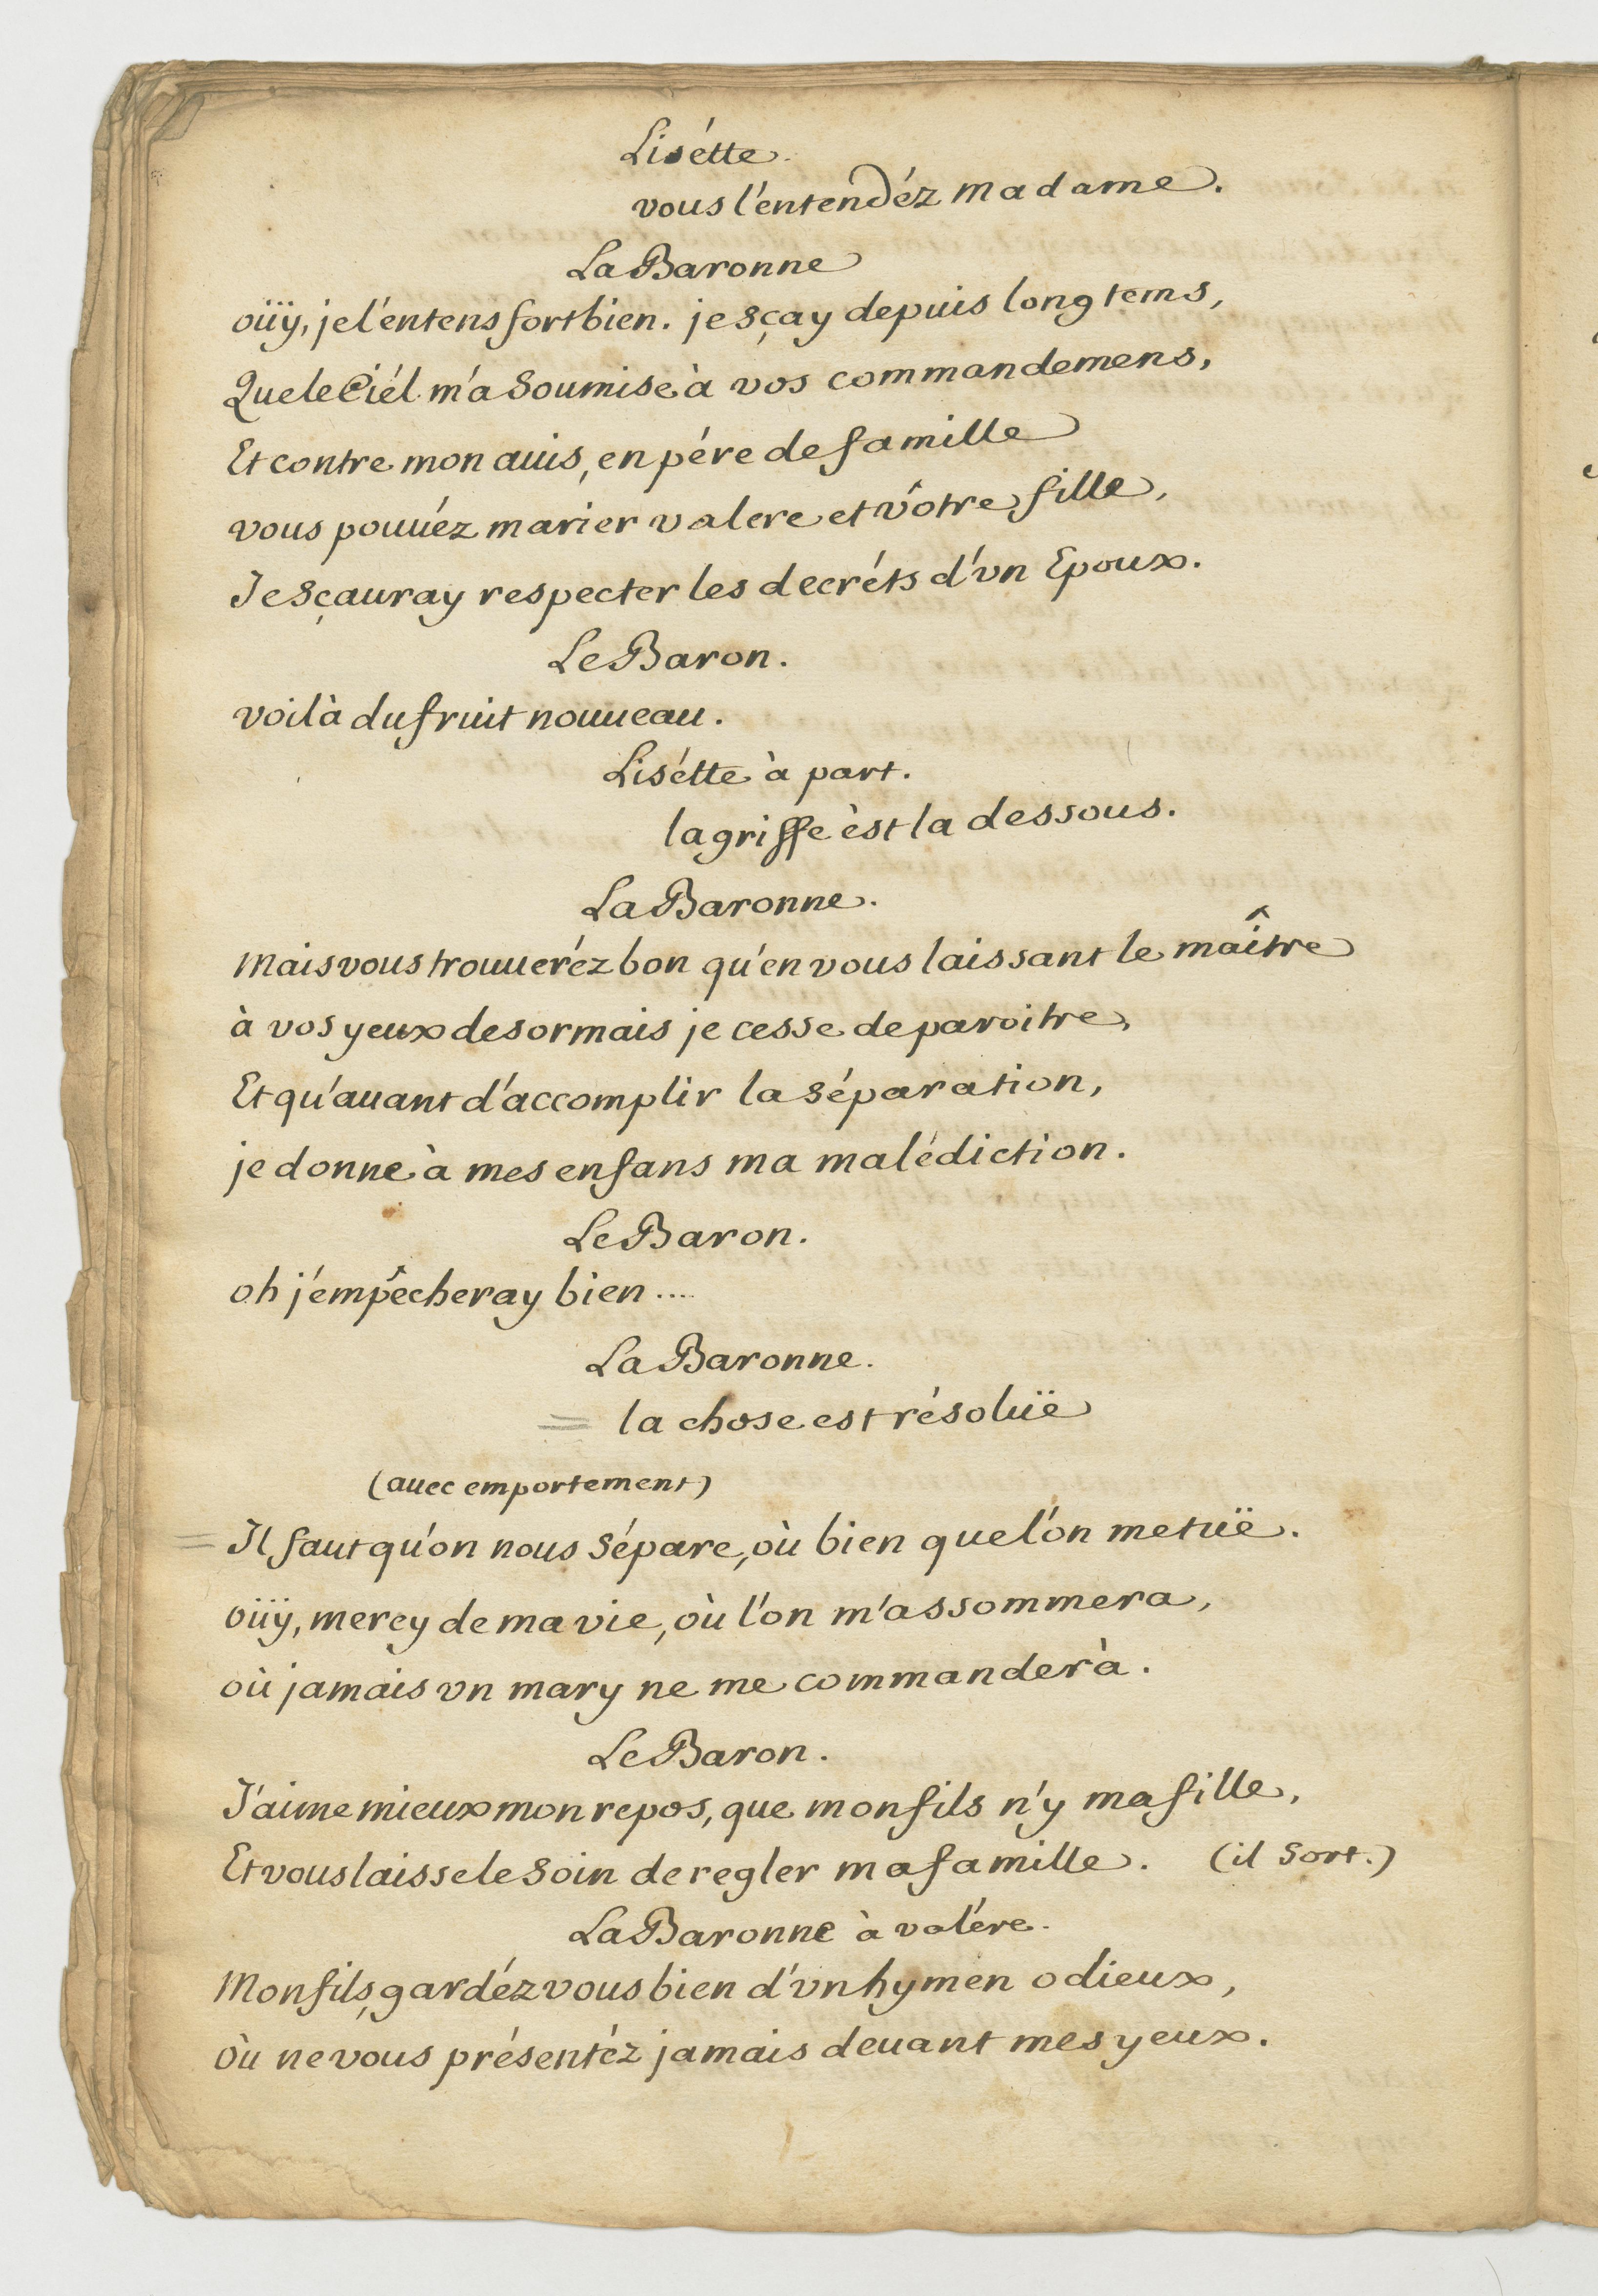 Lisétte.
vous l'entendéz Madame.
La Baronne
oüÿ, je l'éntens fort bien. je sçay depuis long tems,
Que le Ciél m'a Soumise à vos commandemens,
Et contre mon auis, en pére de famille
vous pouuéz marier valere et vôtre fille,
Je sçauray respecter les decréts d'vn Epoux.
Le Baron.
voilà du fruit nouueau.
Lisétte à part.
la griffe èst la dessous.
La Baronne.
Mais vous trouueréz bon qu'en vous laissant le maître
à vos yeux desormais je cesse de paroitre,
Et qu'auant d'accomplir la séparation,
je donne à mes enfans ma malédiction.
Le Baron.
oh j'émpêcheray bien ....
La Baronne.
= la chose est résolüë
(auec emportement)
= Il faut qu'on nous Sépare, où bien que l'ón me tüë.
oüÿ, mercy de ma vie, où l'on m'assommera,
où jamais vn mary ne me commanderà.
Le Baron.
J'aime mieux mon repos, que mon fils n'y ma fille,
Et vous laisse le Soin de regler ma famille. (il Sort.)
La Baronne à valére.
Mon fils, gardéz vous bien d'vn hymen odieux,
Où ne vous présentéz jamais deuant mes yeux.